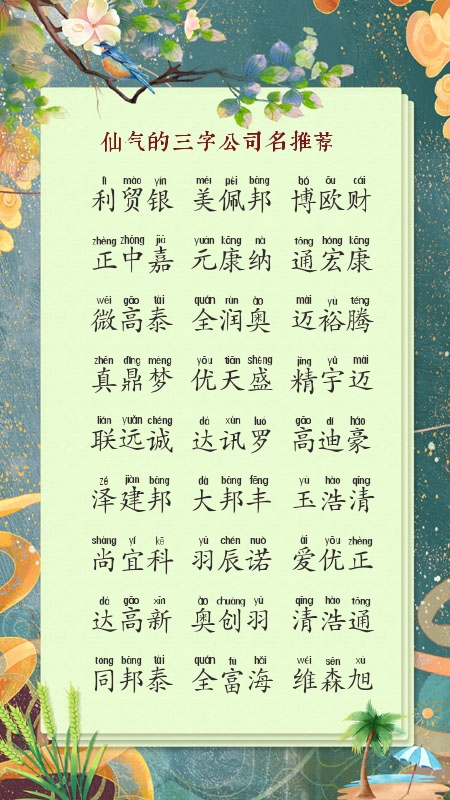 仙气的三字公司名推荐
lì mào yín měi pèi bāng bó ōu cái
利贸银 美佩邦 博欧财
zhèng zhōng jiā yuán kāng nà tōng hóng kāng
正中嘉 元康纳 通宏康
wēi gāo tài quán rùn ào mài yù téng
微高泰 全润奥 迈裕腾
zhēn dǐng mèng yōu tiān shèng jīng yǔ mài
真鼎梦 优天盛 精宇迈
lián yuǎn chéng dá xùn luó gāo dí háo
联远诚 达讯罗 高迪豪
zé jiàn bāng dà bāng fēng yù hào qīng
泽建邦 大邦丰 玉浩清
shàng yí kē yǔ chén nuò ài yōu zhèng
尚宜科 羽辰诺 爱优正
dá gāo xīn ào chuàng yǔ qīng hào tōng
达高新 奥创羽 清浩通
tóng bāng tài quán fù hǎi wéi sēn xù
同邦泰 全富海 维森旭